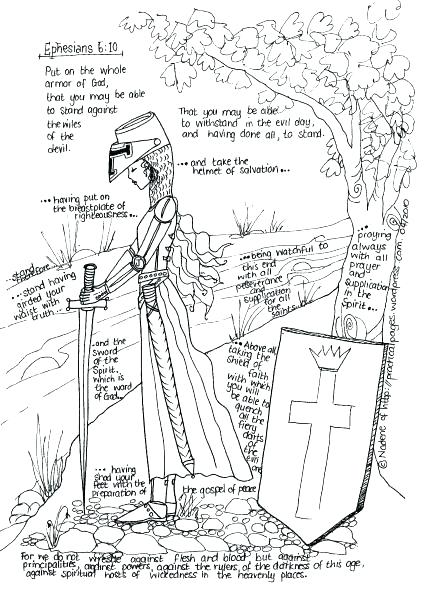 Ephesians 6:10
Put on the whole
armor of God,
that you may be able
to stand against
the wiles
of the
devil.
That you may be able
to withstand in the evil day,
and having done all, to stand.
...and take the
helmet of salvation...
...having put on
the breastplate of
righteousness...
stand
therefore
...stand having
girded your
waist with
truth...
...being watchful to
this end
with all
perseverance
and
supplication
for all
the saints...
...praying
always
with all
prayer
and
supplication
in the
Spirit...
...and the
sword
of the
Spirit,
which is
the word
of God...
...Above all
taking the
shield of
faith
with which
you will
be able to
quench
all the
fiery
darts
of the
evil
one
...having
shod your
feet with the
preparation of
the gospel of peace
For we do not wrestle against flesh and blood but against
principalities, against powers, against the rulers of the darkness of this age,
against spiritual hosts of wickedness in the heavenly places.
© Nadene of http://practicalpages.wordpress.com